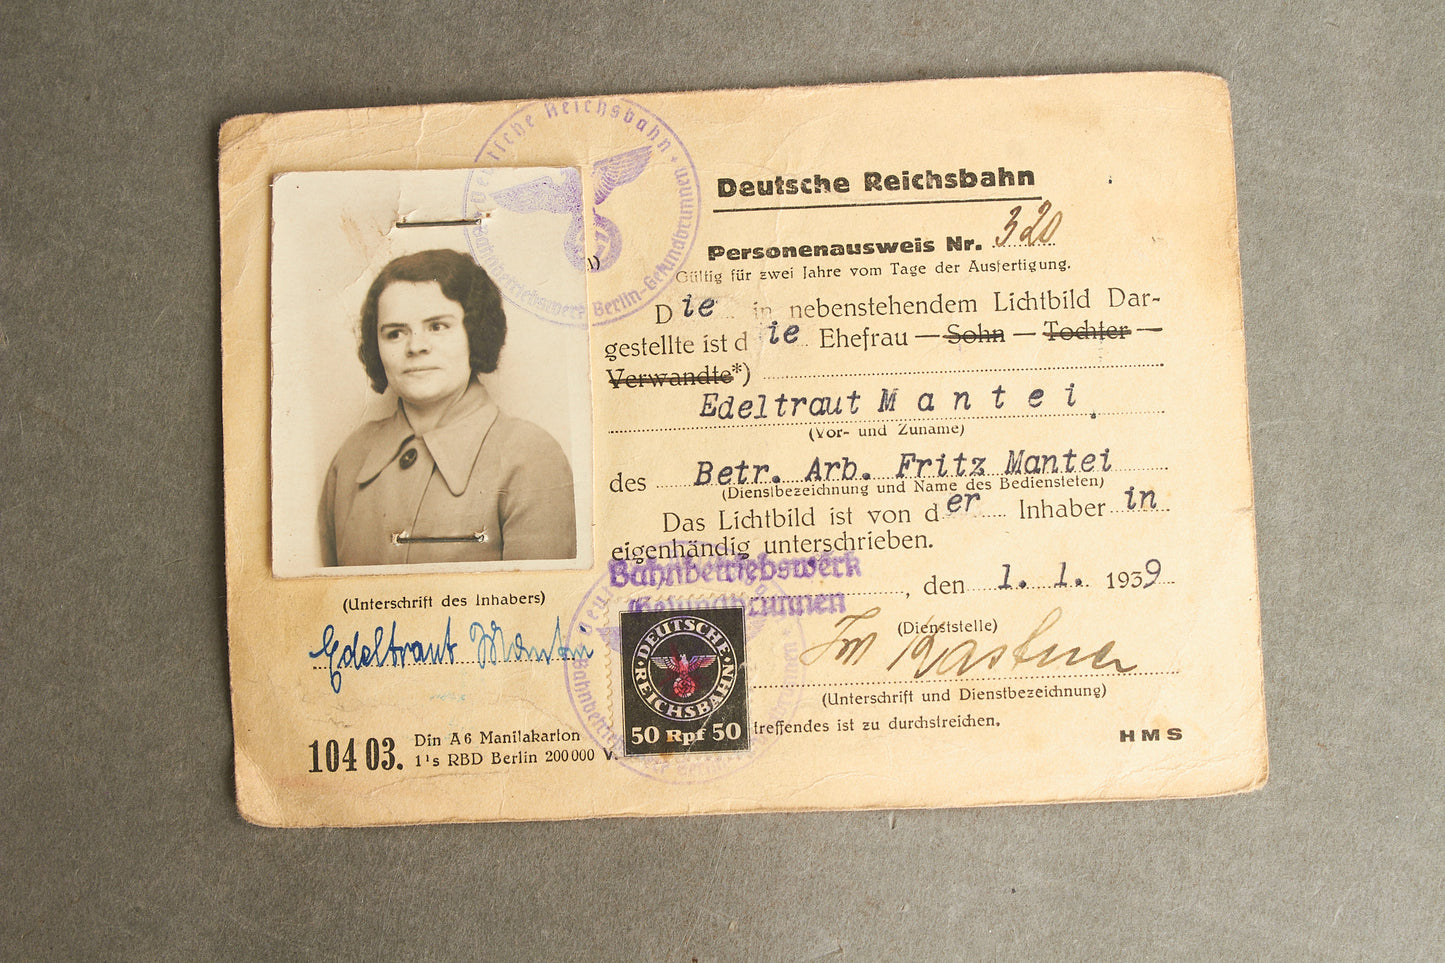 Deutsche Reichsbahn
Personenausweis Nr. 320
Gültig für zwei Jahre vom Tage der Ausfertigung.
Die in nebenstehendem Lichtbild Dar-
gestellte ist die Ehefrau — Sohn — Tochter —
Verwandte*)
Edeltraut Mantei
(Vor- und Zuname)
des Betr. Arb. Fritz Mantei
(Dienstbezeichnung und Name des Bediensteten)
Das Lichtbild ist von der Inhaberin
eigenhändig unterschrieben.
Bahnbetriebswerk
Gesundbrunnen
, den 1. 1. 1939
(Dienststelle)
(Unterschrift und Dienstbezeichnung)
treffendes ist zu durchstreichen.
HMS
(Unterschrift des Inhabers)
Edeltraut Mantei
104 03. Din A6 Manilakarton
1's RBD Berlin 200000 V.
Deutsche Reichsbahn
Bahnbetriebswerk Berlin-Gesundbrunnen
DEUTSCHE
REICHSBAHN
50 Rpf 50